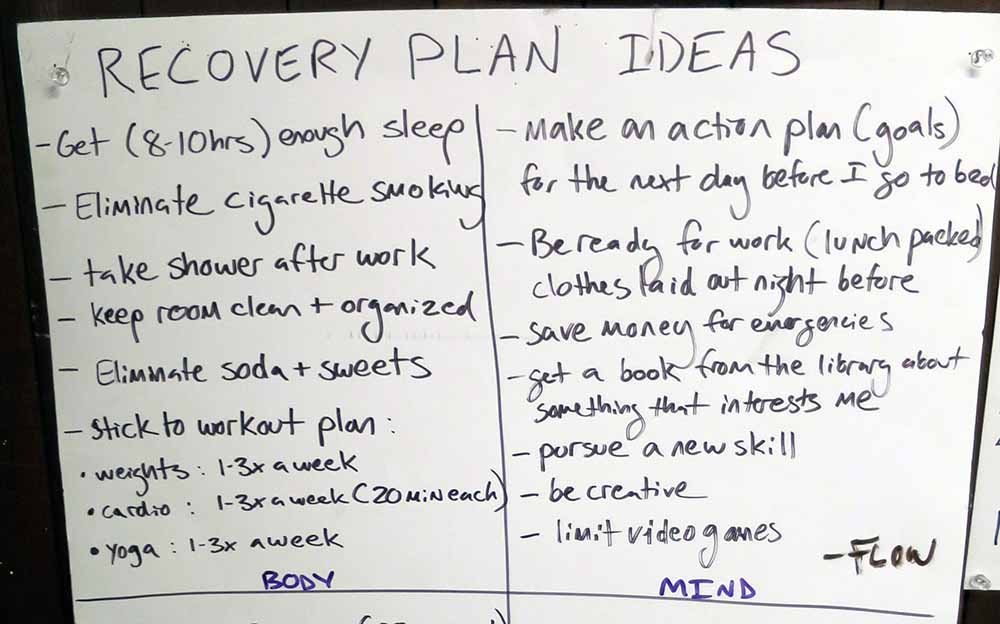 RECOVERY PLAN IDEAS
- Get (8-10hrs) enough sleep
- Eliminate cigarette smoking
- take shower after work
- keep room clean + organized
- Eliminate soda + sweets
- stick to workout plan :
• weights : 1-3x a week
• cardio : 1-3x a week (20 MIN each)
• yoga : 1-3x a week
BODY
- Make an action plan (goals)
for the next day before I go to bed
- Be ready for work (lunch packed)
clothes laid out night before
- save money for emergencies
- get a book from the library about
something that interests me
- pursue a new skill
- be creative
- limit video games
- FLOW
MIND